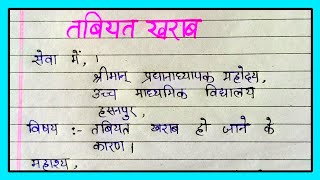 तबियत खराब
सेवा में,
श्रीमान् प्रधानाध्यापक महोदय,
उच्च माध्यमिक विद्यालय
हसनपुर,
विषय :- तबियत खराब हो जाने के
कारण।
महाश्य,